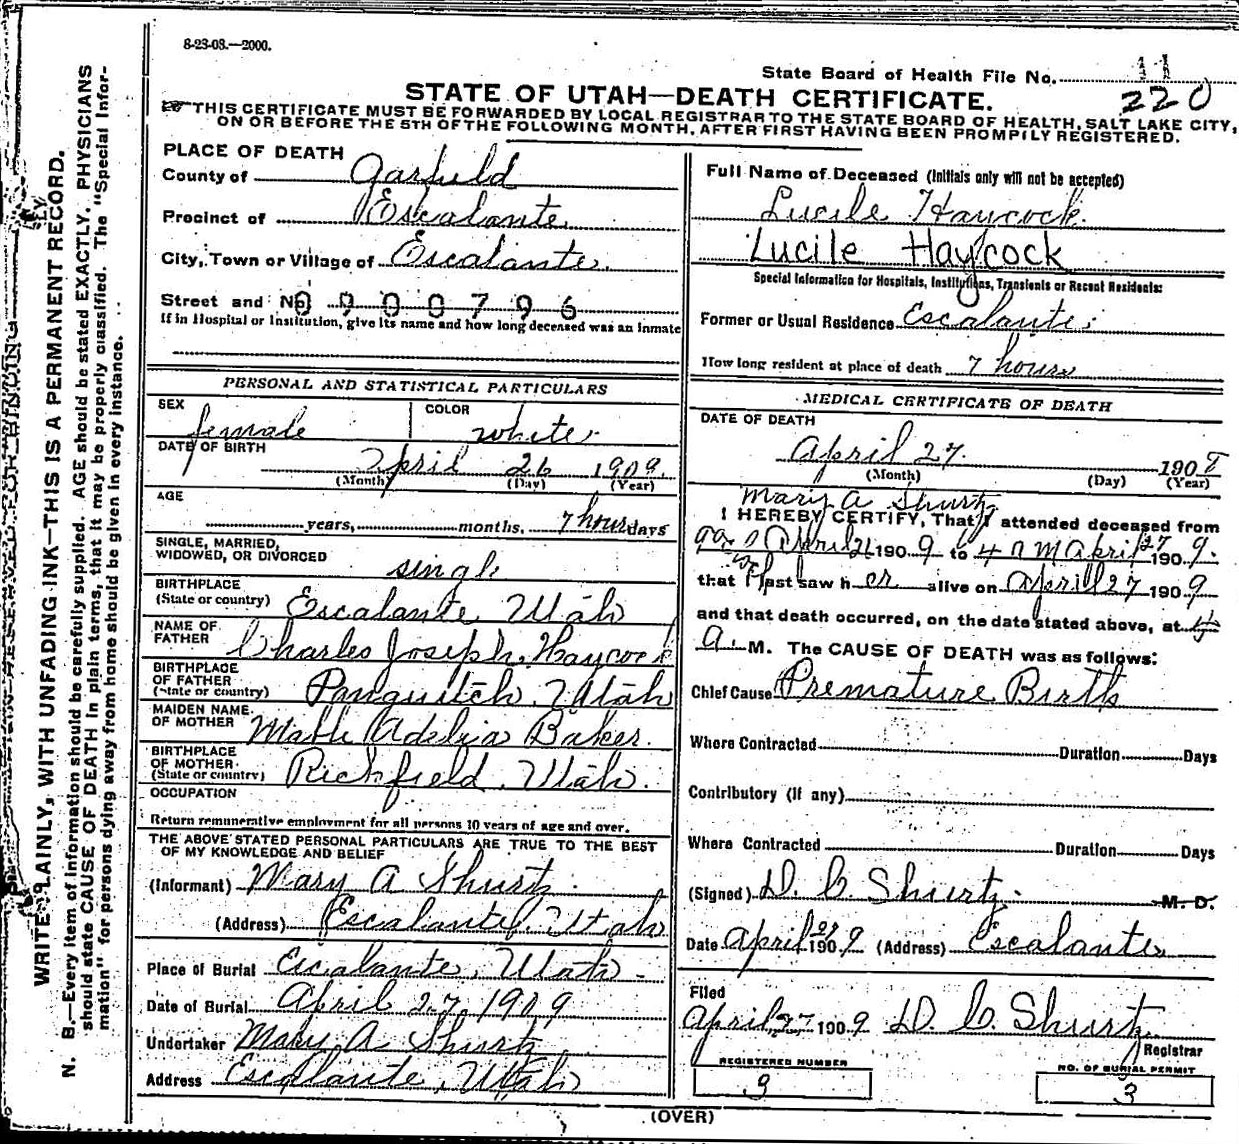 8-23-08.—2000.
State Board of Health File No. 11
220
STATE OF UTAH—DEATH CERTIFICATE.
THIS CERTIFICATE MUST BE FORWARDED BY LOCAL REGISTRAR TO THE STATE BOARD OF HEALTH, SALT LAKE CITY,
ON OR BEFORE THE 5TH OF THE FOLLOWING MONTH, AFTER FIRST HAVING BEEN PROMPILY REGISTERED.
WRITE PLAINLY, WITH UNFADING INK—THIS IS A PERMANENT RECORD.
N. B.—Every item of information should be carefully supplied. AGE should be stated EXACTLY. PHYSICIANS
should state CAUSE OF DEATH in plain terms, that it may be properly classified. The "Special Infor-
mation" for persons dying away from home should be given in every instance.
PLACE OF DEATH
County of Garfield
Precinct of Escalante
City, Town or Village of Escalante.
Street and No. 0900796
If in Hospital or Institution, give its name and how long deceased was an inmate
PERSONAL AND STATISTICAL PARTICULARS
SEX female COLOR white
DATE OF BIRTH
April 26 1909.
(Month) (Day) (Year)
AGE
years, months, 7 hours days
SINGLE, MARRIED,
WIDOWED, OR DIVORCED single
BIRTHPLACE
(State or country) Escalante Utah
NAME OF
FATHER Charles Joseph Haycock
BIRTHPLACE
OF FATHER
(State or country) Panguitch, Utah
MAIDEN NAME
OF MOTHER Mable Adelia Baker.
BIRTHPLACE
OF MOTHER
(State or country) Richfield, Utah.
OCCUPATION
Return remunerative employment for all persons 10 years of age and over.
THE ABOVE STATED PERSONAL PARTICULARS ARE TRUE TO THE BEST
OF MY KNOWLEDGE AND BELIEF
(Informant) Mary A Shurtz
(Address) Escalante, Utah
Place of Burial Escalante, Utah
Date of Burial April 27, 1909
Undertaker Mary A Shurtz
Address Escalante, Utah
Full Name of Deceased (Initials only will not be accepted)
Lucile Haycock.
Lucile Haycock
Special Information for Hospitals, Institutions, Transients or Recent Residents:
Former or Usual Residence Escalante
How long resident at place of death 7 hours
MEDICAL CERTIFICATE OF DEATH
DATE OF DEATH
April 27. 190
(Month) (Day) (Year)
Mary A Shurtz
I HEREBY CERTIFY, That I attended deceased from
April 26 1909 to 4 April 27 1909.
that I last saw her alive on April 27 1909
and that death occurred, on the date stated above, at 4
a. M. The CAUSE OF DEATH was as follows:
Chief Cause Premature Birth
Where Contracted Duration Days
Contributory (if any)
Where Contracted Duration Days
(Signed) D. C. Shurtz. M. D.
Date April 1909 (Address) Escalante
Filed
April 27 1909 D. C. Shurtz
Registrar
REGISTERED NUMBER
9
NO. OF BURIAL PERMIT
3
(OVER)